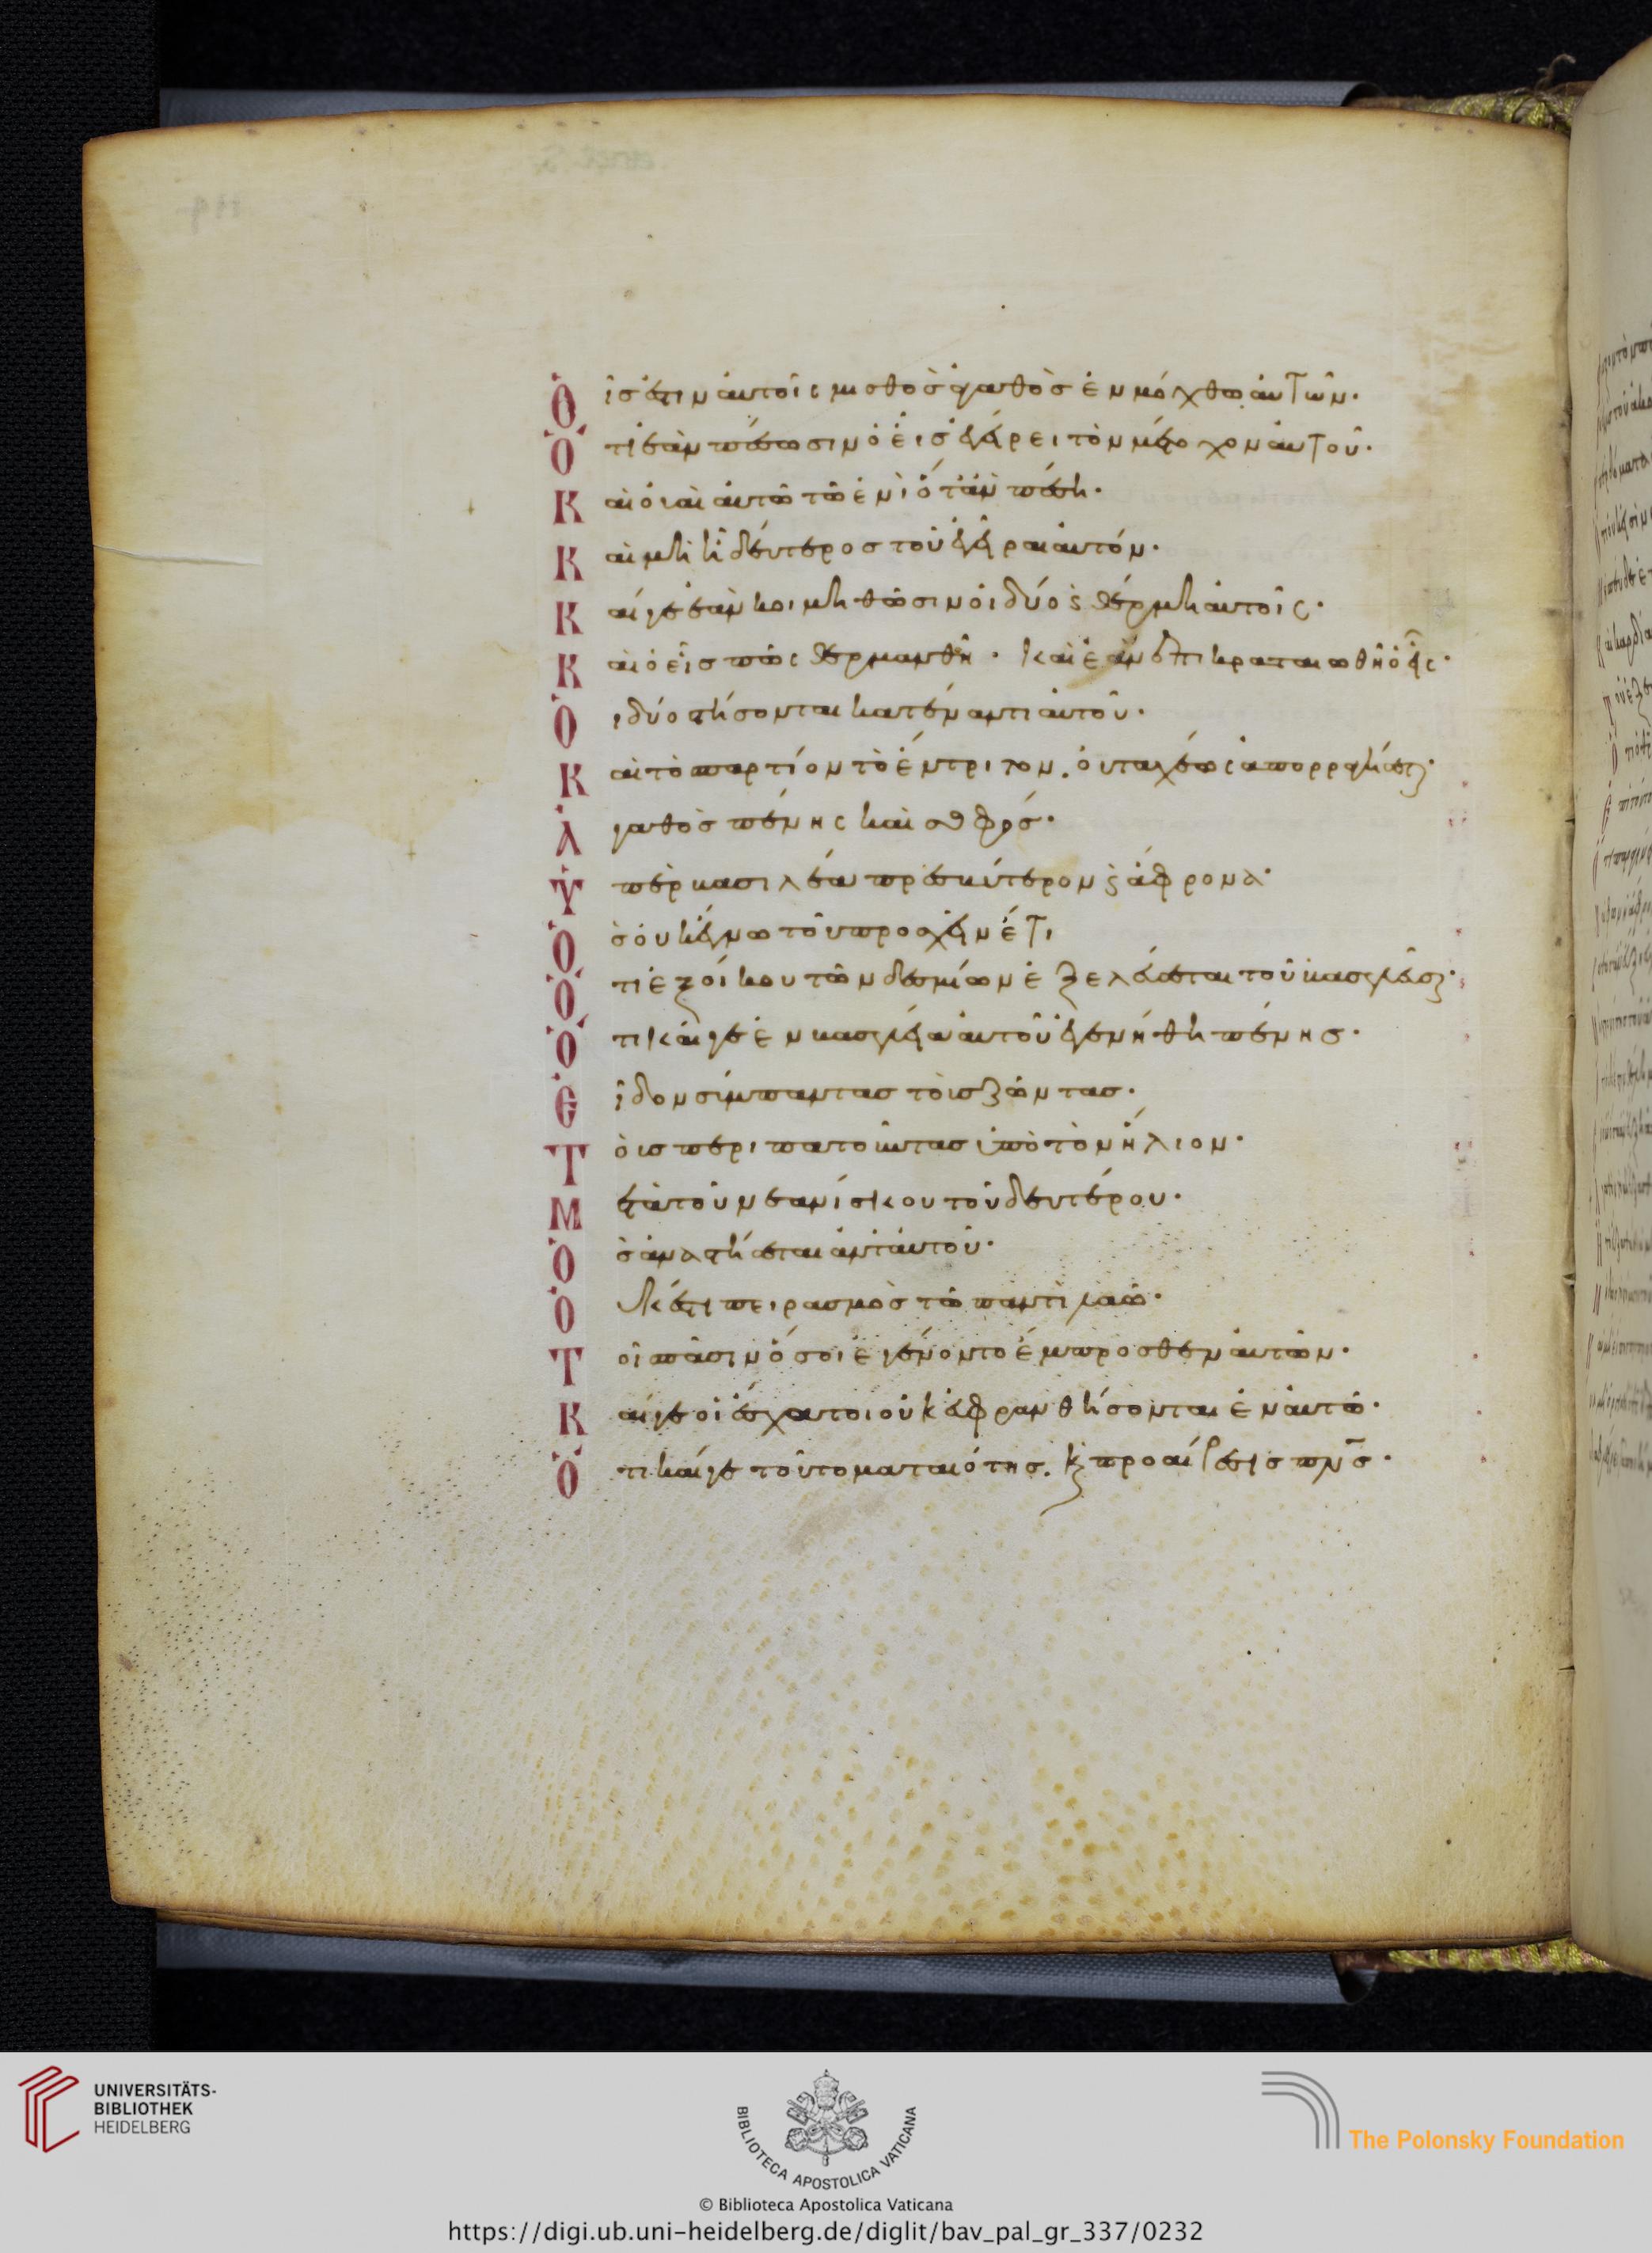 Οἷς ἔστιν αὐτοῖς μισθὸς ἀγαθὸς ἐν μόχθω αὐτῶν·
Ὅτι ἐὰν πέσωσιν ὁ εἷς ἐγερεῖ τὸν μέτοχον αὐτοῦ·
Καὶ οὐαὶ αὐτῶ τῶ ἑνὶ ὅταν πέση·
Καὶ μὴ ἦ δεύτερος τοῦ ἐγεῖραι αὐτόν·
Καίγε ἐὰν κοιμηθῶσιν οἱ δύο ϛ θέρμη αὐτοῖς·
Καὶ ὁ εἷς πῶς θερμανθῆ· Καὶ ἐὰν ἐπικραταιωθῆ ὁ εἷς·
Οἱ δύο στήσονται κατέναντι αὐτοῦ·
Καὶ τὸ σπαρτίον τὸ ἔντριτον. οὐ ταχέως ἀπορραγήσεται·
Ἀγαθὸς πένης καὶ σοφός·
Ὑπὲρ βασιλέα πρεσβύτερον ϛ ἄφρονα·
Ὃς οὐκ ἔγνω τοῦ προσέχειν ἔτι
Ὅτι ἐξ οἴκου τῶν δεσμίων ἐξελεύσεται τοῦ βασιλεῦσαι·
Ὅτι καίγε ἐν βασιλεία αὐτοῦ ἐγενήθη πένης·
Εἶδον σύμπαντας τοὺς ζῶντας·
Τοὺς περιπατοῦντας ὑπὸ τὸν ἥλιον·
Μετὰ τοῦ νεανίσκου τοῦ δευτέρου·
Ὃς ἀναστήσεται ἀντ' αὐτοῦ·
Οὐκ ἔστι πειρασμὸς τῶ παντὶ λαῶ·
Τοῖς πᾶσιν ὅσοι ἐγένοντο ἔμπροσθεν αὐτῶν·
Καίγε οἱ ἔσχατοι οὐκ εὐφρανθήσονται ἐν αὐτῶ·
Ὅτι καίγε τοῦτο ματαιότης. καὶ προαίρεσις πνς·
UNIVERSITÄTS-
BIBLIOTHEK
HEIDELBERG
BIBLIOTECA APOSTOLICA VATICANA
The Polonsky Foundation
© Biblioteca Apostolica Vaticana
https://digi.ub.uni-heidelberg.de/diglit/bav_pal_gr_337/0232